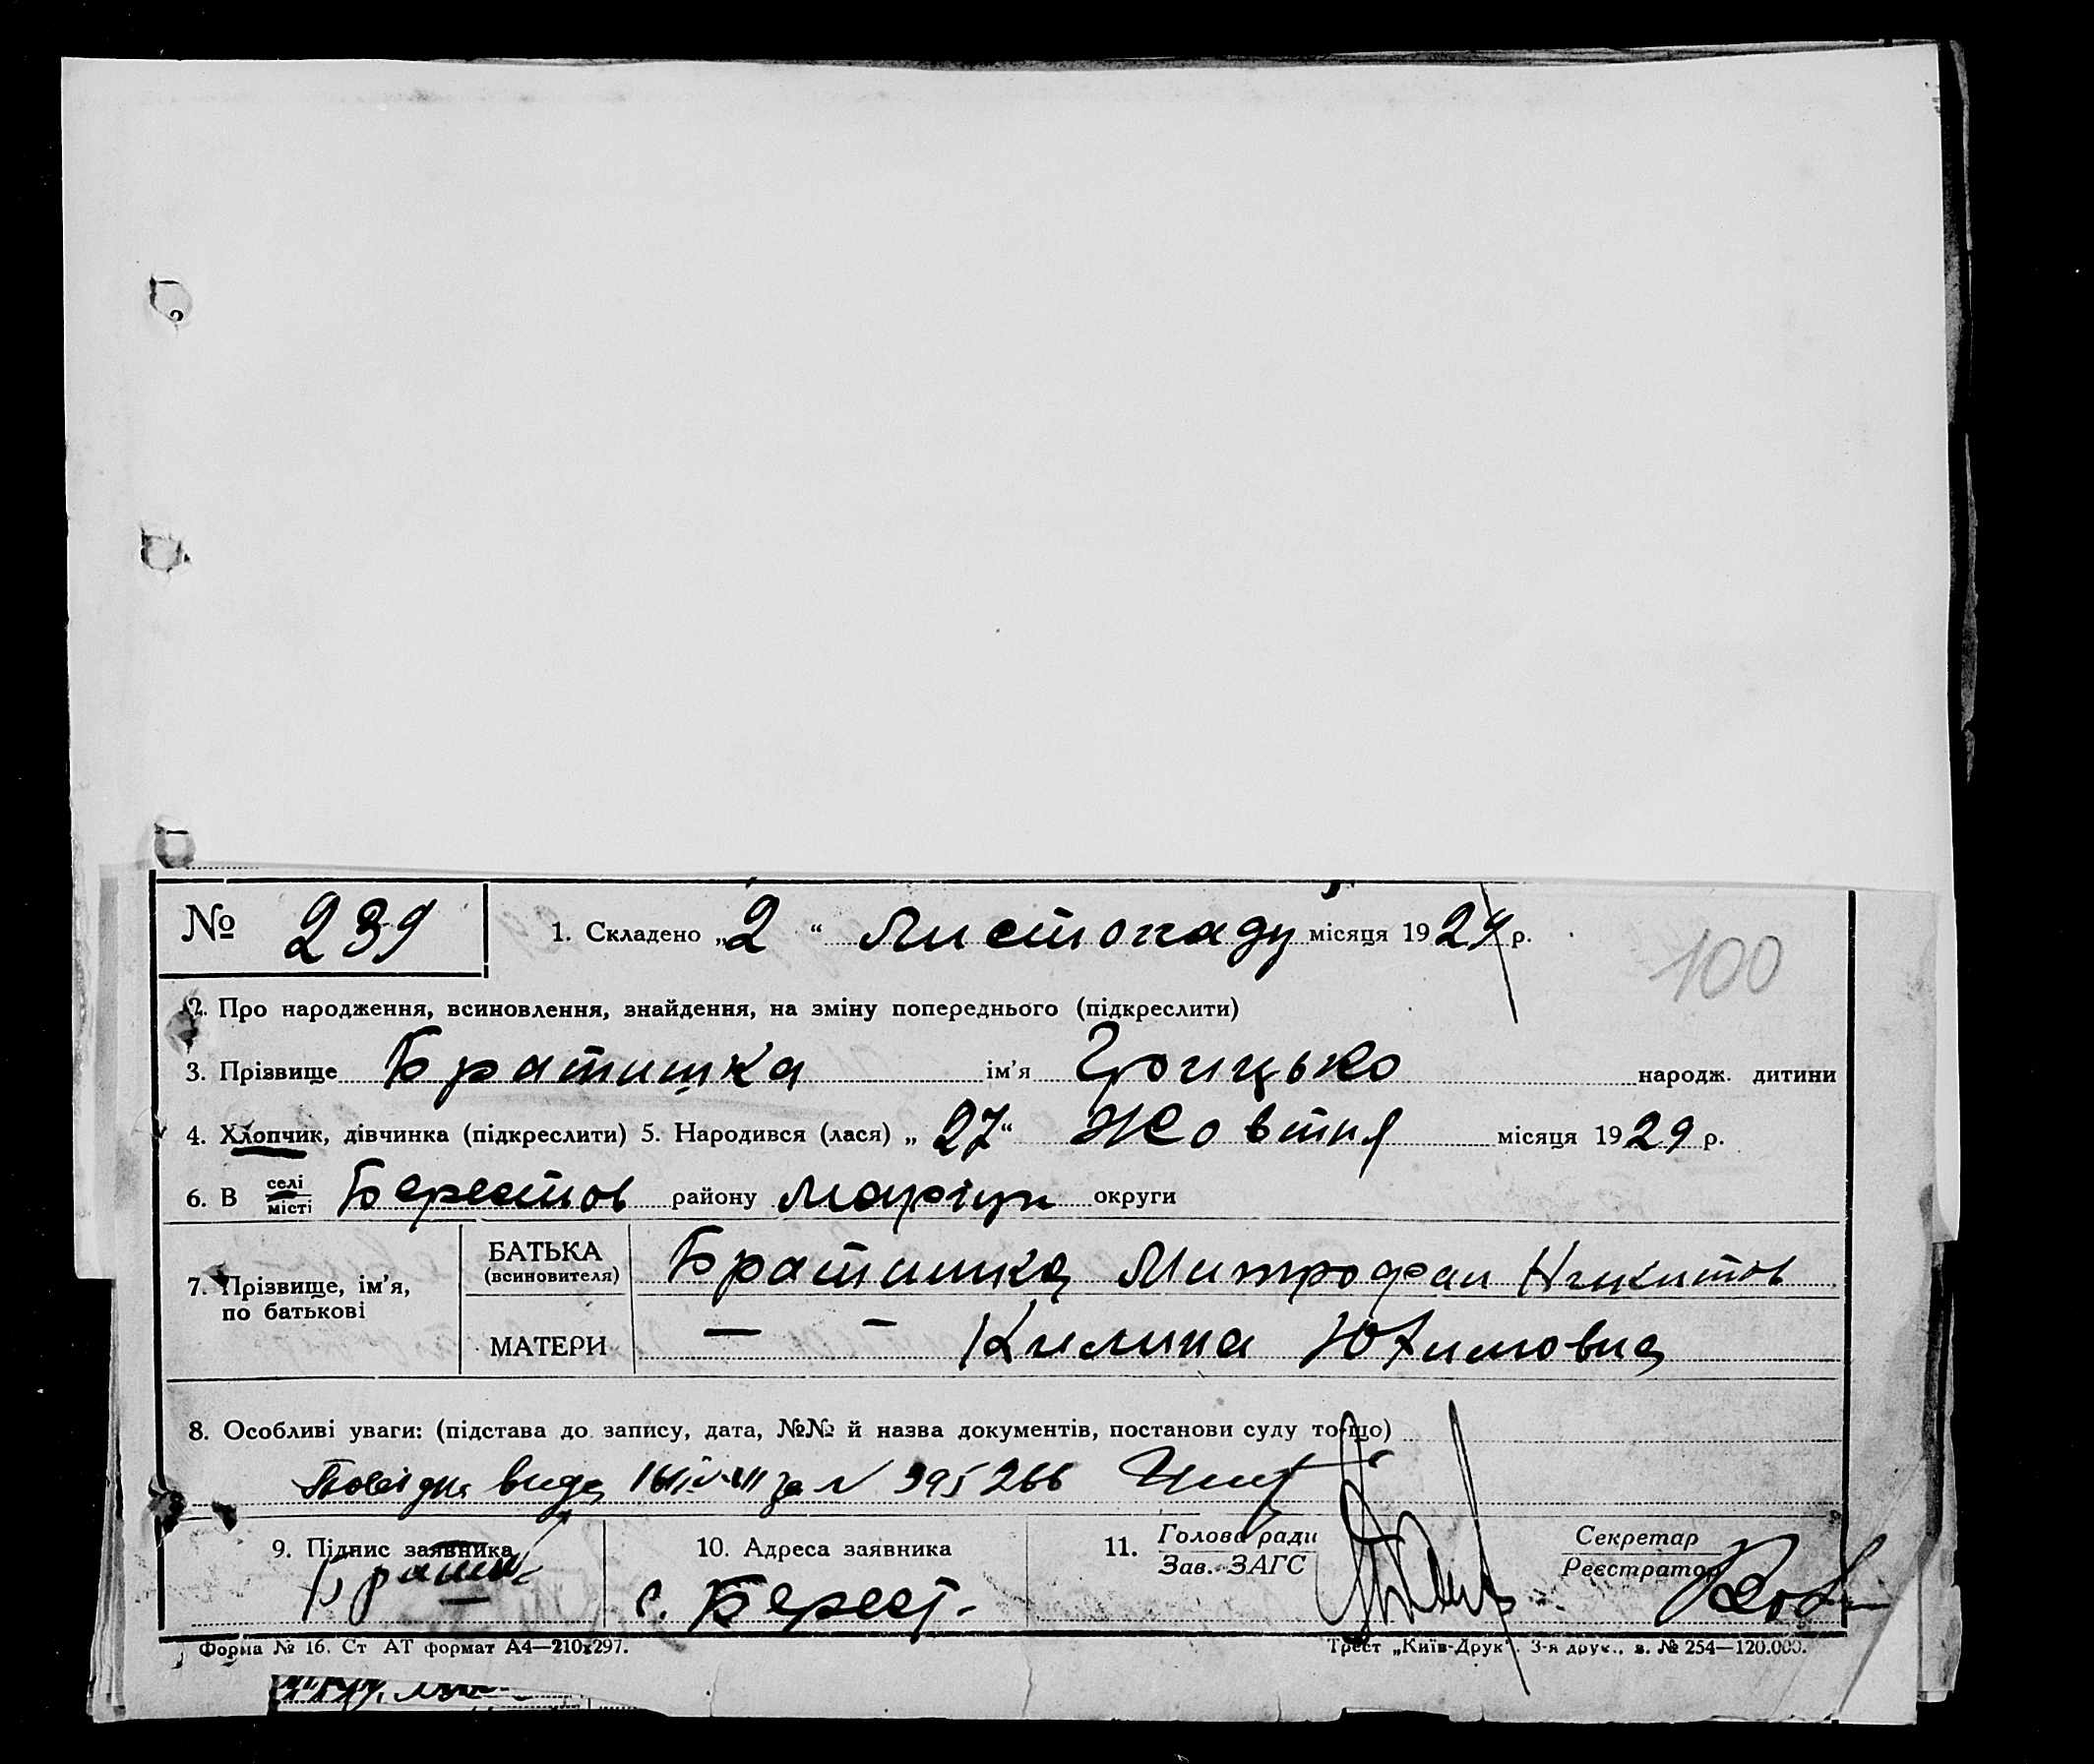 № 239 1. Складено „2“ Листопаду місяця 1929 р.
100
2. Про народження, всиновлення, знайдення, на зміну попереднього (підкреслити)
3. Прізвище Братишка ім’я Грицько народж. дитини
4. Хлопчик, дівчинка (підкреслити) 5. Народився (лася) „27“ Жовтня місяця 1929 р.
6. В селі місті Берестов району Маріуп округи
7. Прізвище, ім’я, по батькові
БАТЬКА (всиновителя) Братишка Митрофан Никитов
МАТЕРИ — — Килина Юхимовна
8. Особливі уваги: (підстава до запису, дата, №№ й назва документів, постанови суду то-що)
395266
9. Підпис заявника
10. Адреса заявника
с. Берест.
11. Голова ради
Зав. ЗАГС
Секретар
Реєстратор
Форма № 16. Ст АТ формат А4—210х297.
Трест „Київ-Друк“. 3-я друк., з. № 254—120.000.